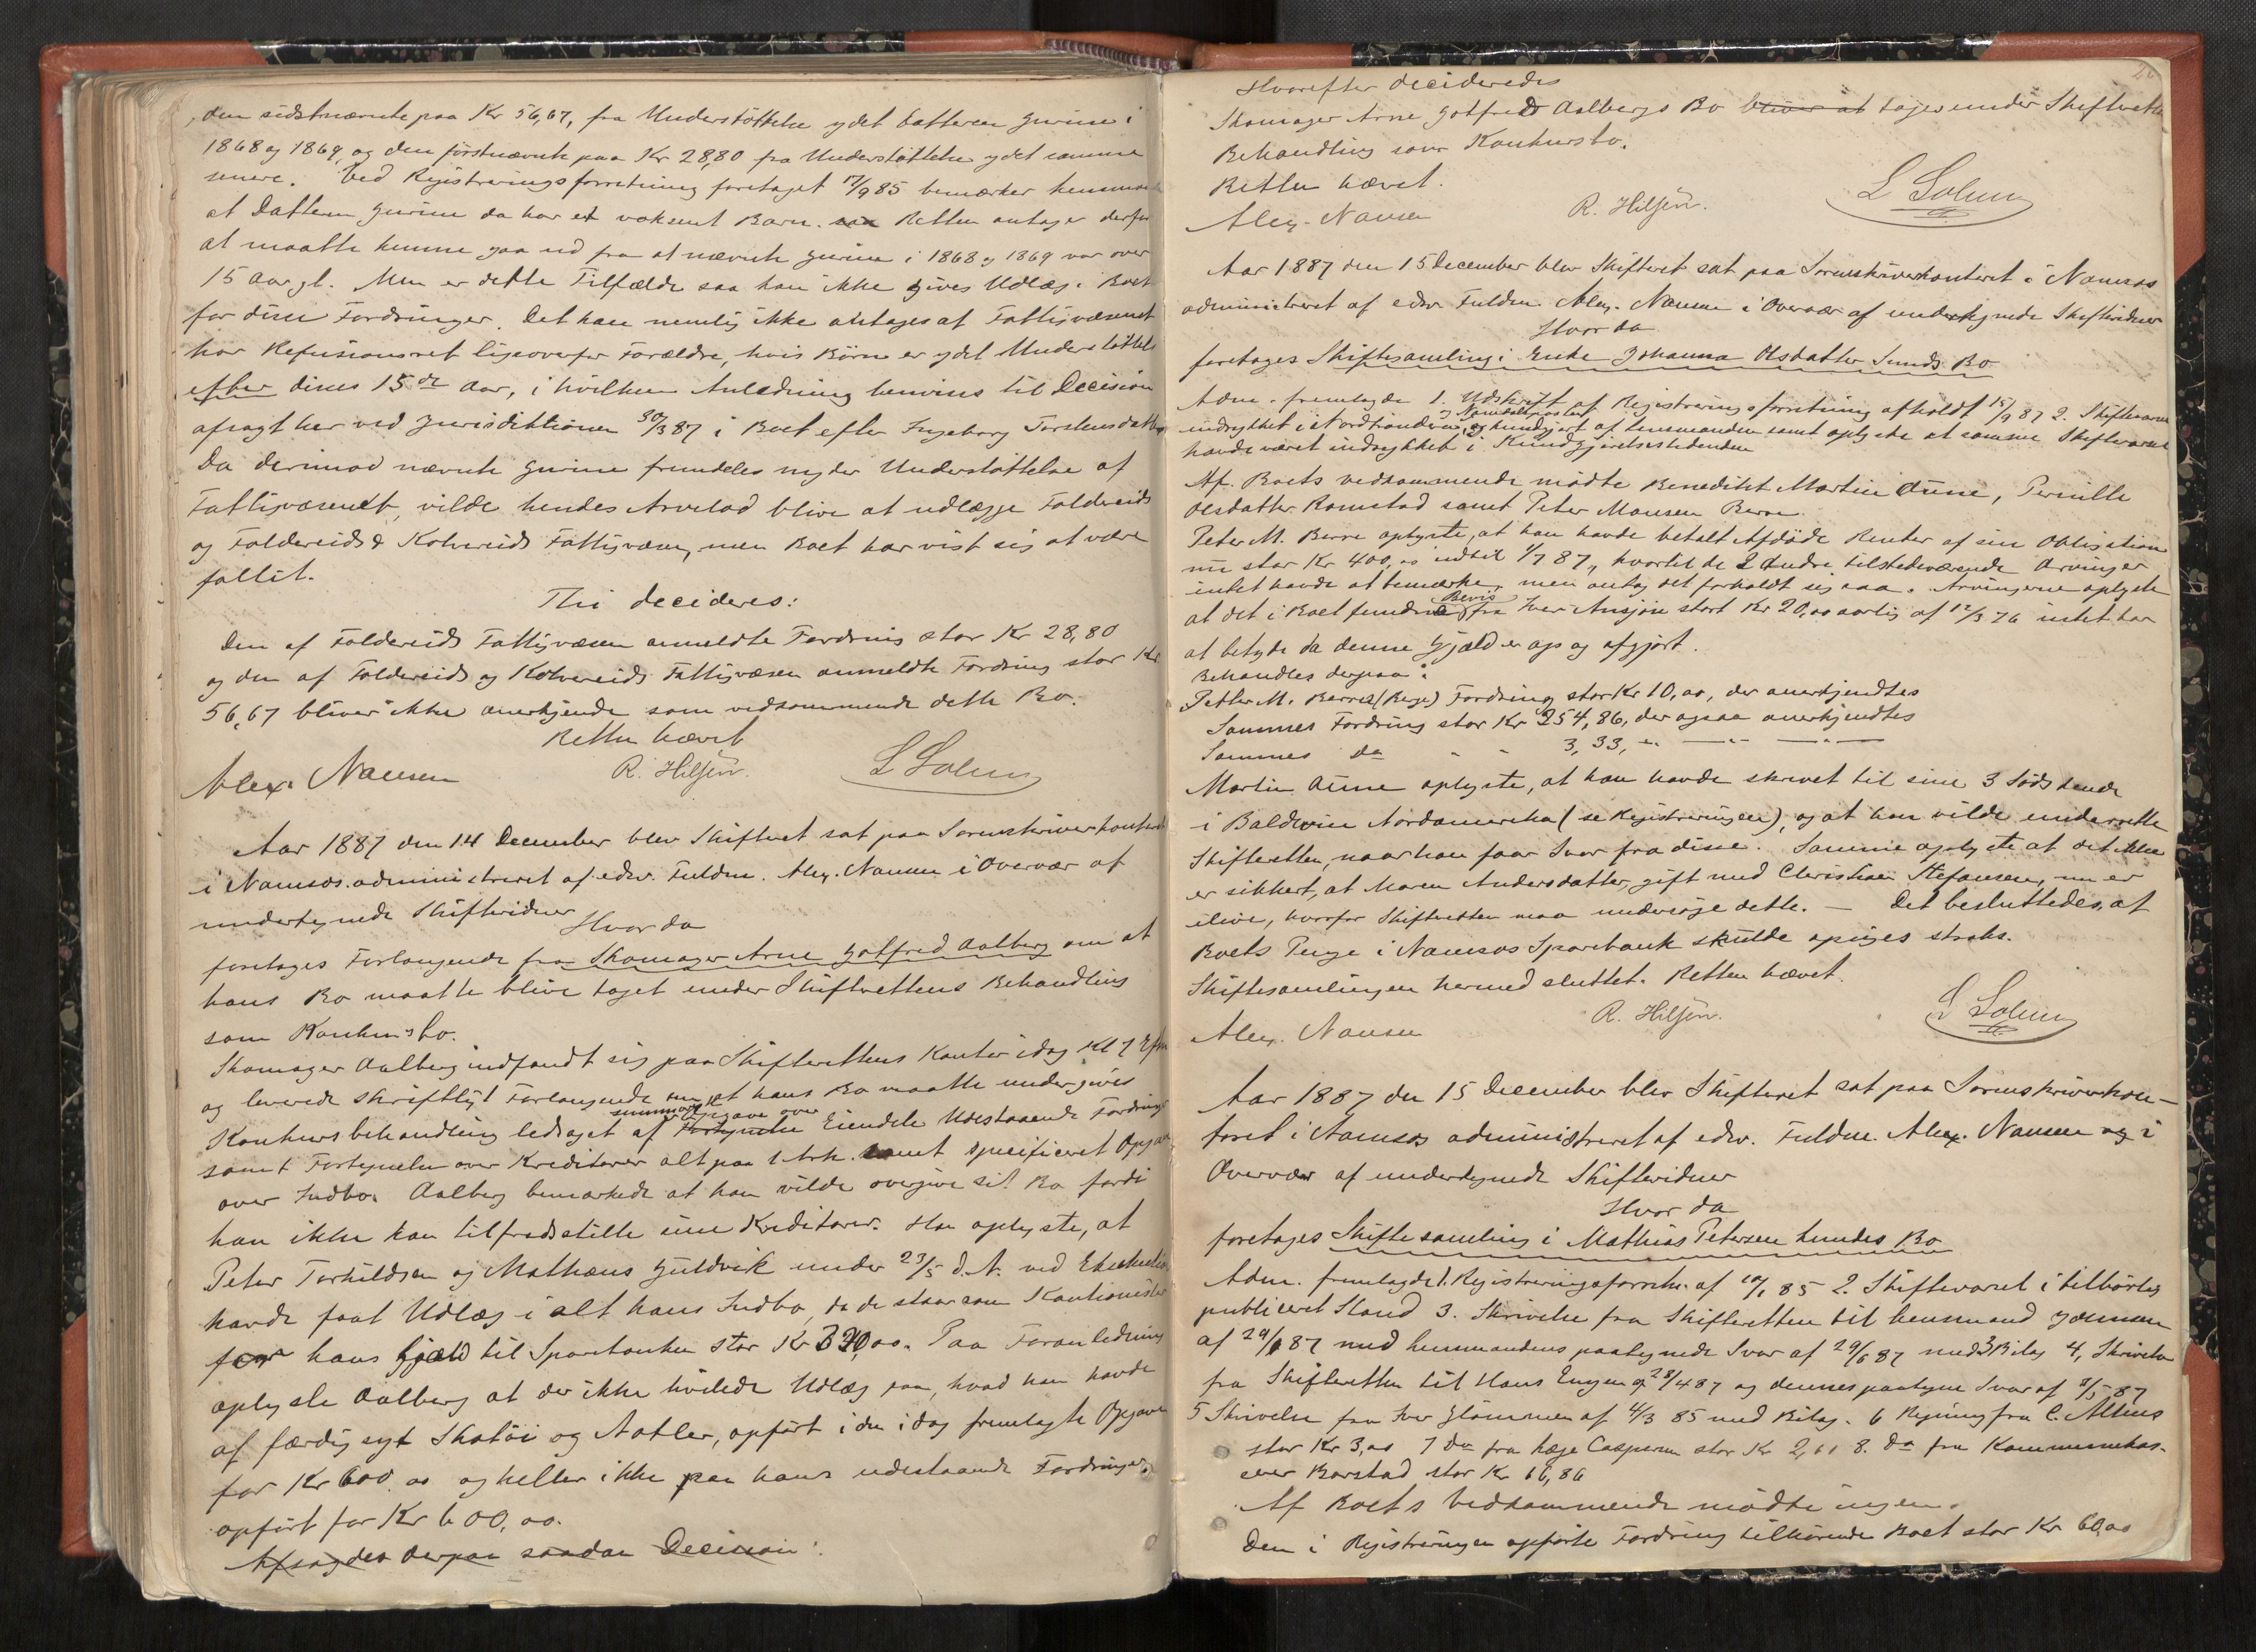 den sidstnævnte paa Kr 56,67, fra Understøttelse ydet Datteren Gurine i
1868 og 1869, og den førstnævnte paa Kr 28,80 fra Understøttelse ydet samme
senere. Ved Registreringsforretning foretaget 17/9 85 bemærker lensmanden
at Datteren Gurine da har et voksent Barn. Retten antager derfor
at maatte kunne gaa ud fra at nævnte Gurine i 1868 og 1869 var over
15 Aar gl. Men er dette Tilfælde saa kan ikke gives Udlæg i Boet
for disse Fordringer. Det kan nemlig ikke antages at Fattigvæsenet
har Refusionsret ligeoverfor Forældre, hvis Børn er ydet Understøttelse
efter disses 15de Aar, i hvilken Anledning henvises til Decision
afsagt her ved Jurisdiktionen 30/3 87 i Boet efter Ingeborg Torstensdatter
Da derimod nævnte Gurine fremdeles nyder Understøttelse af
Fattigvæsenet, vilde hendes Arvelod blive at udlægge Foldereids
og Foldereids & Kolvereids Fattigvæsen, men Boet har vist sig at være
fallit.
Thi decideres:
Den af Foldereids Fattigvæsen anmeldte Fordring stor Kr 28,80
og den af Foldereids og Kolvereids Fattigvæsen anmeldte Fordring stor Kr
56,67 bliver ikke anerkjende som vedkommende dette Bo.
Retten hævet
Alex. Nansen R. Hilsen. L Solum
Aar 1887 den 14 December blev Skifteret sat paa Sorenskriverkontoret
i Namsos administreret af edsv. Fuldm. Alex. Nansen i Overvær af
undertegnede Skiftevidner
Hvor da
foretages Forlangende fra Skomager Arne Gotfred Aalberg om at
hans Bo maatte blive taget under Skifterettens Behandling
som Konkursbo.
Skomager Aalberg indfandt sig paa Skifterettens Kontor idag Kl 7 Efm
og leverede skriftligt Forlangende om at hans Bo maatte undergives
summarisk Opgave over
Konkursbehandling ledsaget af Fortegnelse Eiendele Udestaaende Fordringer
samt Fortegnelse over Kreditorer alt paa 1 Ark. samt specificeret Opgave
over Indbo. Aalberg bemærkede at han vilde overgive sit Bo fordi
han ikke kan tilfredsstille sine Kreditorer. Han oplyste, at
Peter Torkildsen og Mathæus Guldvik under 23/5 d.A. ved Exekution
havde faat Udlæg i alt hans Indbo, da de staar som Kautionister
for hans Gjæld til Sparebanken stor Kr 320,00. Paa Foranledning
oplyste Aalberg at der ikke hvilede Udlæg paa, hvad han havde
af færdig syt Skotøi og Aatler, opført i den idag fremlagte Opgave
for Kr 600.00 og heller ikke paa hans udestaaende Fordringer
opført for Kr 600,00.
Afsagdes derpaa saadan Decision:
Hvorefter decideredes
Skomager Arne Gotfreds Aalbergs Bo bliver at tages under Skifterettens
Behandling som Konkursbo.
Retten hævet.
Alex. Nansen R. Hilsen. L Solum
Aar 1887 den 15 December blev Skifteret sat paa Sorenskriverkontoret i Namsos
administreret af edsv. Fuldm. Alex. Nansen i Overvær af undertegnede Skiftevidner
Hvor da
foretages Skiftesamling i Enke Johanna Olsdatter Sunds Bo
Adm. fremlagde 1. Udskrift af Registreringsforretning afholdt 15/9 87 2. Skiftevarsel
og Namdalsposten
indrykket i Nordtrønderen, og kundgjort af lensmanden samt oplyste at samme Skiftevarsel
havde været indrykket i Kundgjørelsestidenden
Af Boets vedkommende mødte Benedikt Martin Aune, Pernille
Olsdatter Romstad samt Peter Mansen Berre.
Peter M. Berre oplyste, at han havde betalt Afdøde Renter af sin Obligation
nu stor Kr 400,00 indtil 1/7 87, hvortil de 2 Andre tilstedeværende Arvinger
intet havde at bemærke, men antog det forholdt sig saa. Arvingerne oplyste
Bevis
at det i Boet fundne fra Iver Ansjøn stort Kr 20,00 aarlig af 12/3 76 intet har
at betyde da denne Gjæld er op og afgjort.
Behandles derpaa:
Petter M. Berres (Berge) Fordring stor Kr 10,00, der anerkjendtes
Sammes Fordring stor Kr 254,86, der ogsaa anerkjendtes
Sammes do - - 3,33, - - -
Martin Aune oplyste, at han havde skrevet til sine 3 Sødskende
i Baldwin Nordamerika (se Registreringen), og at han vilde underrette
Skifteretten, naar han faar Svar fra disse. Samme oplyste at det ikke
er sikkert, at Maren Andersdatter, gift med Christian Stefansen, nu er
ilive, hvorfor Skifteretten maa undersøge dette. — Det besluttedes, at
Boets Penge i Namsos Sparebank skulde opsiges straks.
Skiftesamlingen hermed sluttet. Retten hævet.
Alex. Nansen R. Hilsen. L Solum
Aar 1887 den 15 December blev Skifteret sat paa Sorenskriverkon-
toret i Namsos administreret af edsv. Fuldm. Alex. Nansen og i
Overvær af undertegnede Skiftevidner
Hvor da
foretages Skiftesamling i Mathias Petersen Lundes Bo
Adm. fremlagde 1. Registreringsforretn. af 10/1 85 2. Skiftevarsel i tilbørlig
publiceret Stand 3. Skrivelse fra Skifteretten til lensmand
af 24/6 87 med lensmandens paategnede Svar af 29/6 87 med 3 Bilag 4, Skrivelse
fra Skifteretten til Hans Engen af 28/4 87 og dennes paategne Svar af 8/5 87
5 Skrivelse fra Iver Glømmen af 4/3 85 med Bilag. 6 Regning fra C.
stor Kr 3,00 7 do fra læge Caspersen stor Kr 2,61 8. do fra Kommunekas-
serer Barstad stor Kr 66,86
Af Boets Vedkommende mødte ingen.
Den i Registreringen opførte Fordring tilhørende Boet stor Kr 60,00